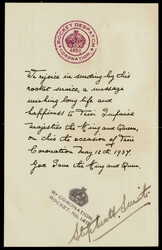 ROCKET DESPATCH
1937
CORONATION
We rejoice in sending by this
rocket service, a message
wishing long life and
happiness to Their Imperial
majesties the King and Queen,
on this the occasion of Their
Coronation May 12th 1937.
God Save the King and Queen.
BY CORONATION
ROCKET
Stephen H. Smith